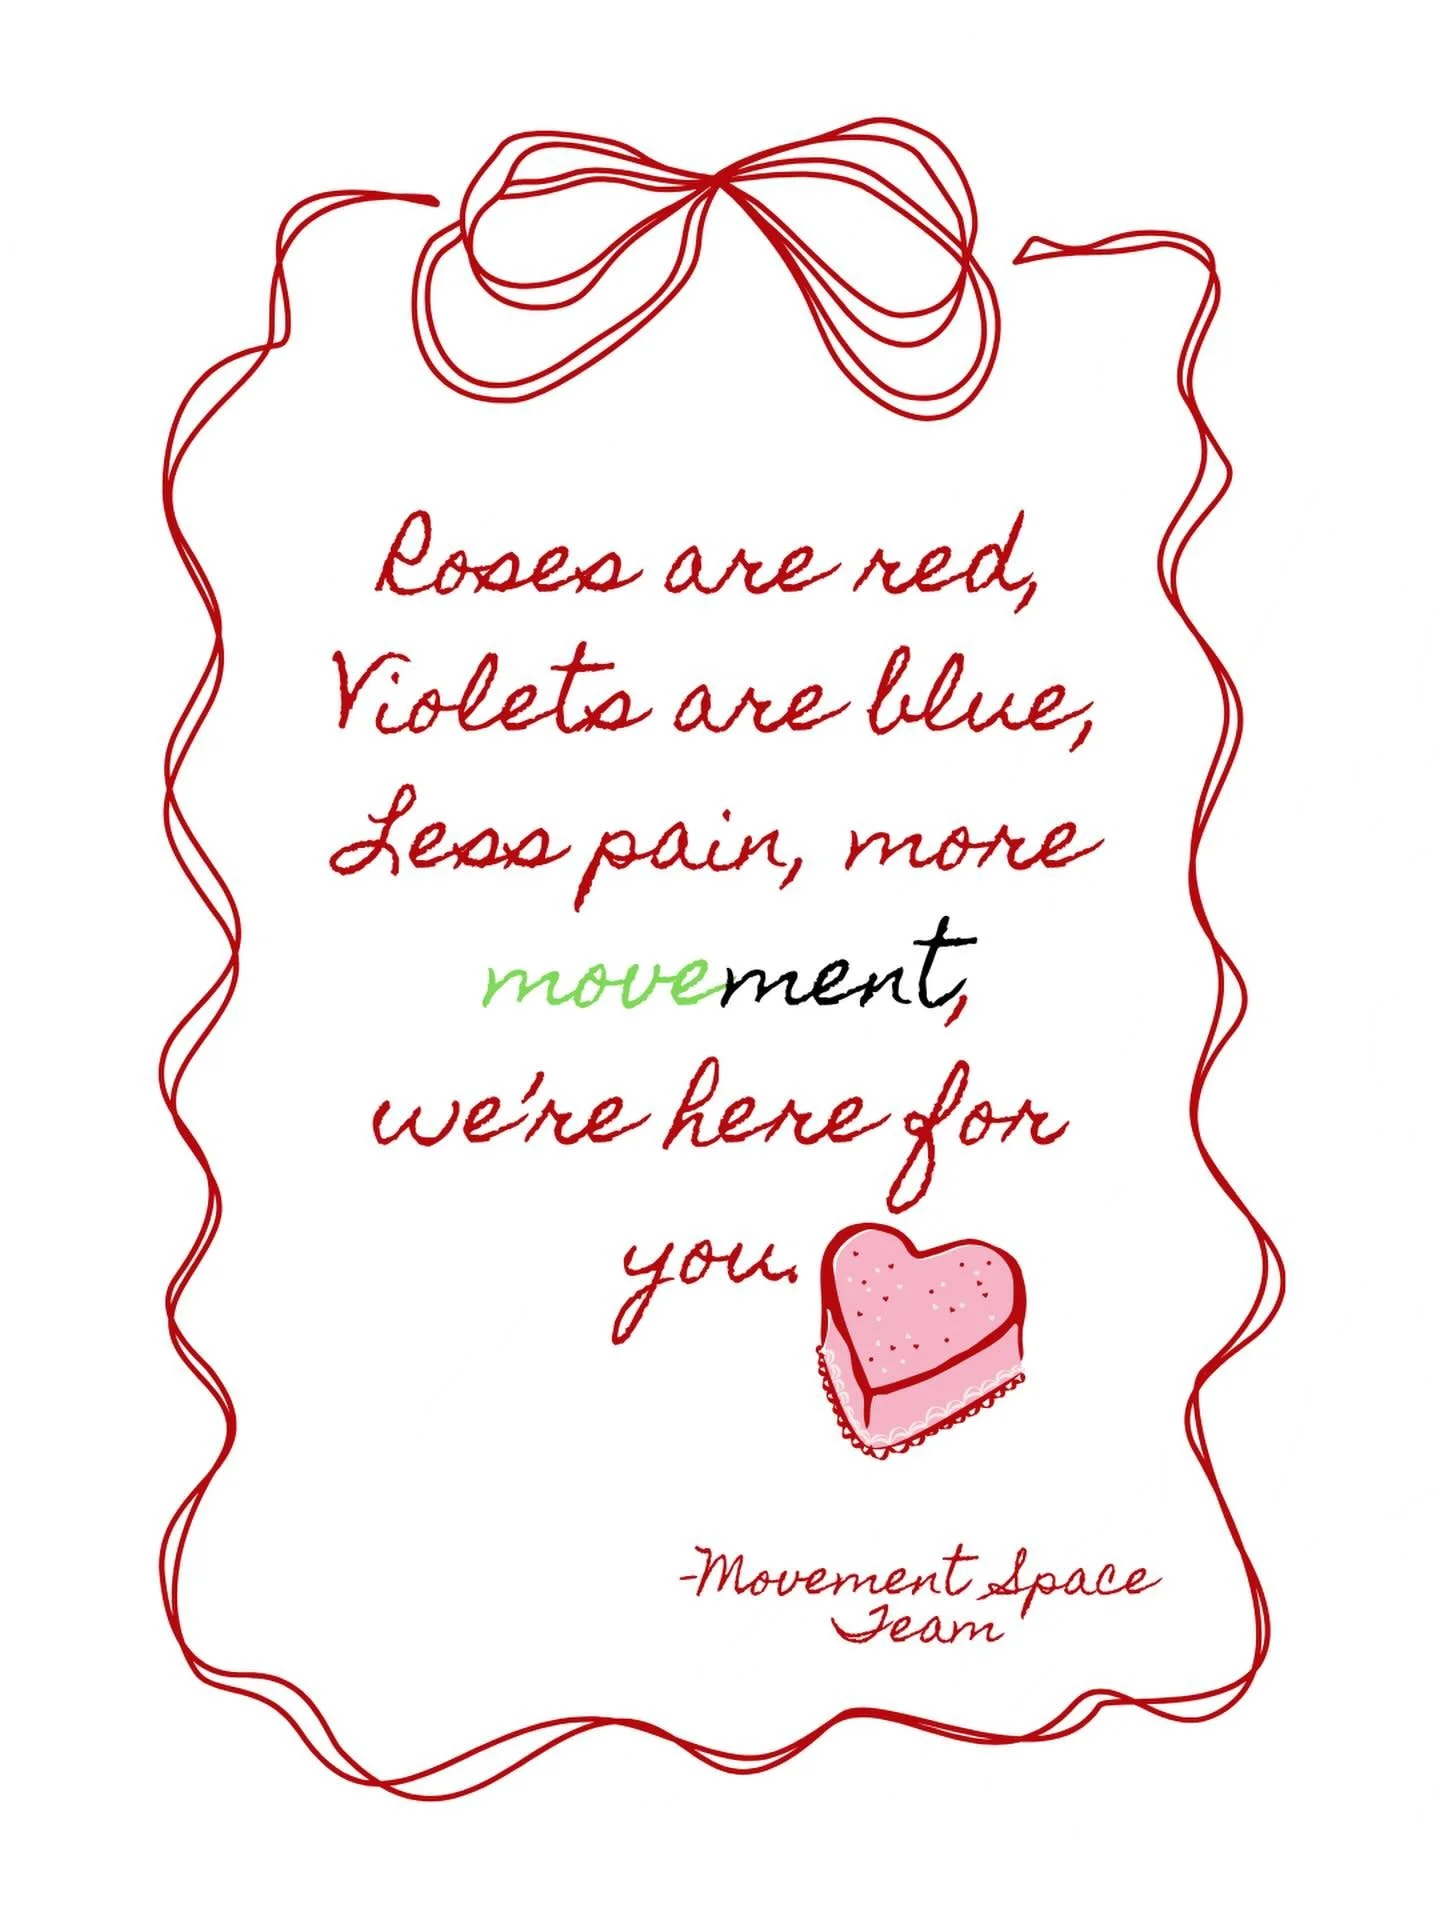 Roses are red,
Violets are blue,
Less pain, more
movement,
we're here for
you.
-Movement Space
Team